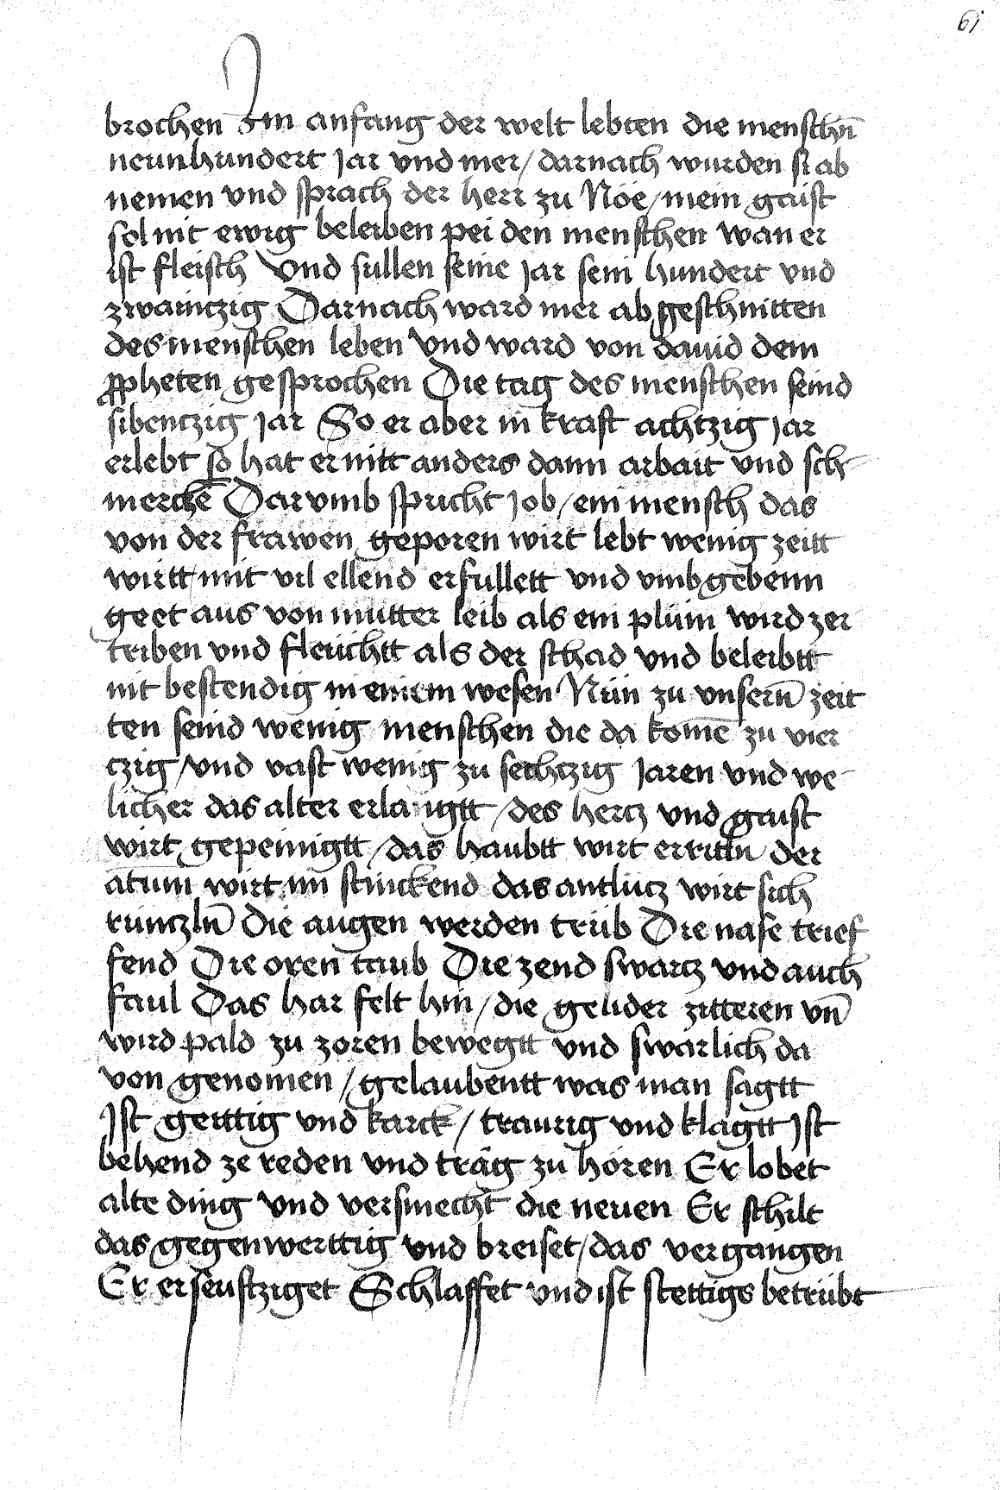 61
brochen Im anfang der welt lebten die menschn̄
neunhundert jar vnd mer / darnach wurden si ab
nemen vnd sprach der herr zu Noe / mein gaist
sol nit ewig beleiben pei den menschen wan er
ist fleisch Vnd sullen seine jar sein hundert vnd
zwainczig Darnach ward mer ab geschnitten
des menschen leben Vnd ward von dauid dem
ꝓpheten gesprochen Die tag des menschen seind
sibenczig jar So er aber in krafft achtzig jar
erlebt so hat er nitt anders dann arbait vnd sch-
merchē Darvmb spricht job / ein mensch das
von der frawen geporen wirt lebt wenig zeitt
wirtt mit vil ellend erfullett vnd vmbgebenn
geet aus von mutter leib als ein plům wird zer
triben vnd fleüchtt als der schad vnd beleibtt
nit bestendig in einem wesen Nůn zu vnsern̄ zeit
ten seind wenig menschen die da komē zu vier
czig / vnd vast wenig zu sechtzig jaren vnd we-
licher das alter erlangtt / des hercz vnd gaist
wirt gepeinigtt / das haubtt wirt erritln der
atum wirt im stinckend das antlücz wirt sich
rünczln̄ Die augen werden trüb Die nase trief
fend Die oren taub Die zend swarcz vnd auch
faul Das har felt hin / die gelider zitteren vn̄
wird pald zu zoren bewegtt vnd swärlich da
von genomen / gelaubentt was man sagtt
Ist geittig vnd karck / traurig vnd klagtt Ist
behend ze reden vnd träg zu hören Er lobet
alte ding vnd versmecht die neuen Er schilt
das gegenwerttig vnd breiset / das vergangen
Er erseuftziget Schlaffet vnd ist stettigs betrübt